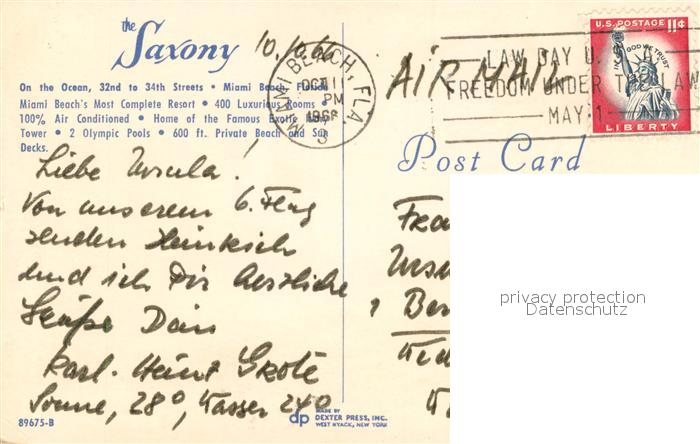 the
Saxony
10.10.66
On the Ocean, 32nd to 34th Streets • Miami Beach, Florida
Miami Beach's Most Complete Resort • 400 Luxurious Rooms •
100% Air Conditioned • Home of the Famous Exotic Ivory
Tower • 2 Olympic Pools • 600 ft. Private Beach and Sun
Decks.
MIAMI BEACH, FLA.
OCT 11
PM
1966
AIR MAIL
LAW DAY U.S.A.
FREEDOM UNDER THE LAW
MAY 1
U.S. POSTAGE 11¢
IN GOD WE TRUST
LIBERTY
Post Card
Liebe Ursula!
Von unserem 6. Flug
senden Heinrich
und ich Dir herzliche
Grüße Dein
Karl-Heinz Grote
Sonne, 28°, Wasser 24°
Frau
Ursu
1 Ber
privacy protection
Datenschutz
89675-B
dp
MADE BY
DEXTER PRESS, INC.
WEST NYACK, NEW YORK